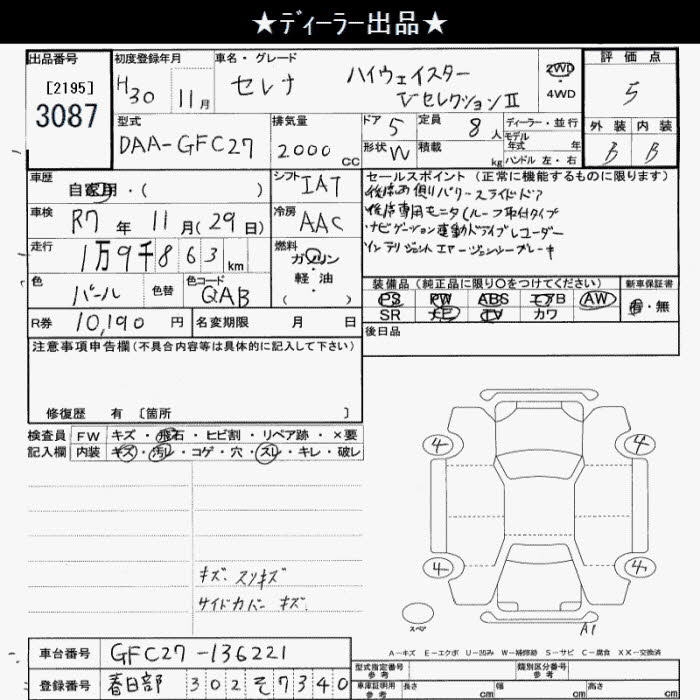 ★ディーラー出品★
出品番号 初度登録年月 車名・グレード 評価点
[2195]
3087
H30 11月 セレナ ハイウェイスター VセレクションⅡ 2WD ・ 4WD 5
型式 排気量 ドア 5 定員 8人 ディーラー・並行 外装 内装
DAA-GFC27 2000cc 形状 W 積載 kg モデル年式 年 B B
ハンドル 左・右
車歴 自家用・( ) シフト IAT セールスポイント (正常に機能するものに限ります)
後席両側パワースライドドア
車検 R7年 11月(29日) 冷房 AAC 後席専用モニタ(ルーフ取付タイプ
ナビゲーション連動ドライブレコーダー
走行 1万9千863km 燃料 ガソリン・軽油 ( ) インテリジェントエマージェンシーブレーキ
色 パール 色替 色コード QAB 装備品 (純正品に限り○をつけてください) 新車保証書
PS PW ABS エアB AW 有・無
R券 10,190円 名変期限 月 日 SR TV カワ
後日品
注意事項申告欄(不具合内容等は具体的に記入して下さい)
修復歴 有 [箇所 ]
検査員 FW キズ・飛石・ヒビ割・リペア跡・×要
記入欄 内装 キズ・汚レ・コゲ・穴・スレ・キレ・破レ
4 4
4 4
キズ. スリキズ
サイドカバー キズ.
スペア A1
A-キズ E-エクボ U-凹み W-補修跡 S-サビ C-腐食 XX-交換済
車台番号 GFC27-136221
型式指定番号 参考 類別区分番号 参考
登録番号 春日部 302 そ 7340
車庫証明用 参考 長さ cm 幅 cm 高さ cm